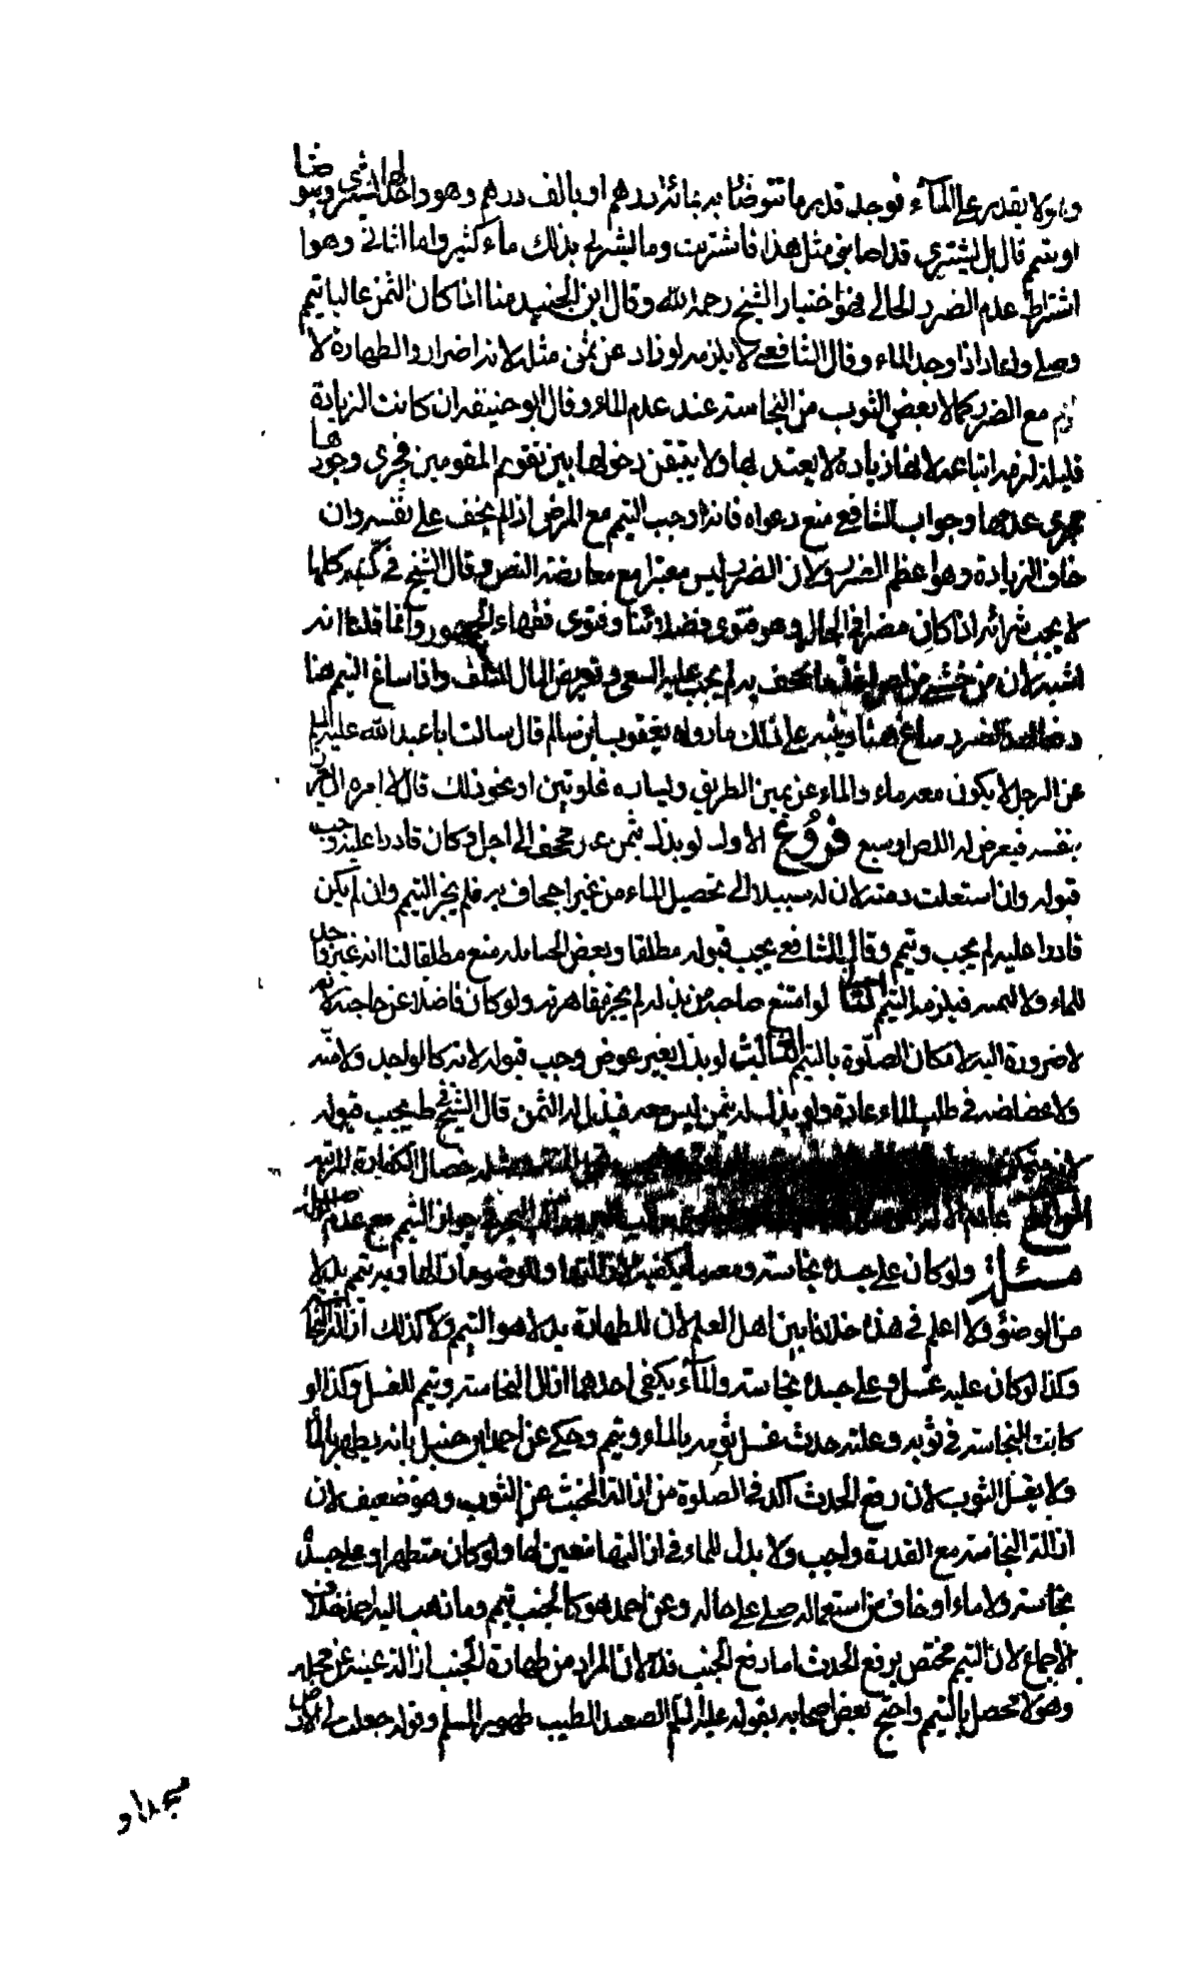 وهو لا يقدر على المآء فوجد قدر ما تتوضا به بمائة درهم او بالف درهم وهو واجد لها ايشتري ويتوضا
او يتيمم قال بل يشتري قد اصابني مثل هذا فاشتريت وما يشرى بذلك ماء كثير واما الثاني وهو
اشتراط عدم الضرر الحالي فهو اختيار الشيخ رحمه الله وقال ابن الجنيد منا اذا كان الثمن غاليا تيمم
وصلى واعاد اذا وجد الماء وقال الشافعي لا يلزمه لو زاد عن ثمن مثله لانه اضرار والطهارة لا
تلزم مع الضرر كما لا بعض الثوب من النجاسة عند عدم الماء وقال ابو حنيفه ان كانت الزيادة
قليلة لزمه ابتياعه لانها زيادة لا يعتد بها ولا يتيقن دخولها بين تقويم المقومين فجرى وجودها
مجرى عدمها وجواب الشافعي منع دعواه فانه اوجب التيمم مع المرض اذا لم يخف على نفسه وان
خاف الزيادة وهو اعظم الضرر ولان الضرر ليس معتبرا مع معارضة النص وقال الشيخ في كتبه كلها
لا يجب شرائه اذا كان مضرا في الحال وهو فتوى فضلائنا وفتوى فقهاء الجمهور وانما قلنا انه
اشبه لان من خشي من لص اخذ ما يجحف به لم يجب عليه السعي وتعريض المال للتلف واذا ساغ التيمم هنا
دفعا للضرر ساغ هنا وينبه على ذلك ما رواه يعقوب ابن سالم قال سالت ابا عبد الله عليه السلم
عن الرجل لا يكون معه ماء والماء عن يمين الطريق ويساره غلوتين او نحو ذلك قال لا امره ان يغرر
بنفسه فيعرض له اللص او سبع فروع الاول لو بذل بثمن غير مجحف الى اجل وكان قادرا عليه وجب
قبوله وان استعلت ذمته لان له سبيلا الى تحصيل الماء من غير اجحاف به فلم يجز التيمم وان لم يكن
قادرا عليه لم يجب وتيمم وقال الشافعي يجب قبوله مطلقا وبعض الحنابلة منع مطلقا لنا انه غير واجد
للماء ولا لثمنه فيلزمه التيمم الثاني لو امتنع صاحبه من بذله لم يجز مقاهرته ولو كان فاضلا عن حاجته لانه
لا ضرورة اليه لامكان الصلوة بالتيمم الثالث لو بذل بغير عوض وجب قبوله لانه كالواجد ولا منة
ولا غضاضة في طلب الماء عادة ولو بذل له بثمن ليس معه فبذل له الثمن قال الشيخ في ط يجب قبوله
لانه متمكن خصال الكفارة المرتبة
الموانع عادم جواز التيمم مع عدم حصوله
مسئلة ولو كان على جسده نجاسة ومعه ما يكفيه لازالتها او للوضوء ازالها وبه تيمم بدلا
من الوضوء ولا اعلم في هذه خلافا بين اهل العلم لان للطهارة بدلا هو التيمم ولا كذلك ازالة النجاسة
وكذا لو كان عليه غسل وعلى جسده نجاسة والمآء يكفي احدهما ازال النجاسة وتيمم للغسل وكذا لو
كانت النجاسة في ثوبه وعليه حدث غسل ثوبه بالماء وتيمم وحكي عن احمد ابن حنبل بانه يطهر بالما
ولا يغسل الثوب لان رفع الحدث آكد في الصلوة من ازالة الخبث عن الثوب وهو ضعيف لان
ازالة النجاسة مع القدرة واجب ولا بدل للماء في ازالتها متعين لها ولو كان متطهرا وعلى جسده
نجاسة ولا ماء او خاف من استعماله صلى على حاله وعن احمد هو كالجنب تيمم وما ذهب اليه احمد خلاف
الاجماع لان التيمم مختص برفع الحدث اما رفع الجنب فلا لان المراد من طهارة الجنب ازالة عينه عن محله
وهو لا تحصل بالتيمم واحتج بعض اصحابه بقوله عليه السلم الصعيد الطيب طهور المسلم وقوله جعلت لي الارض
مسجدا و